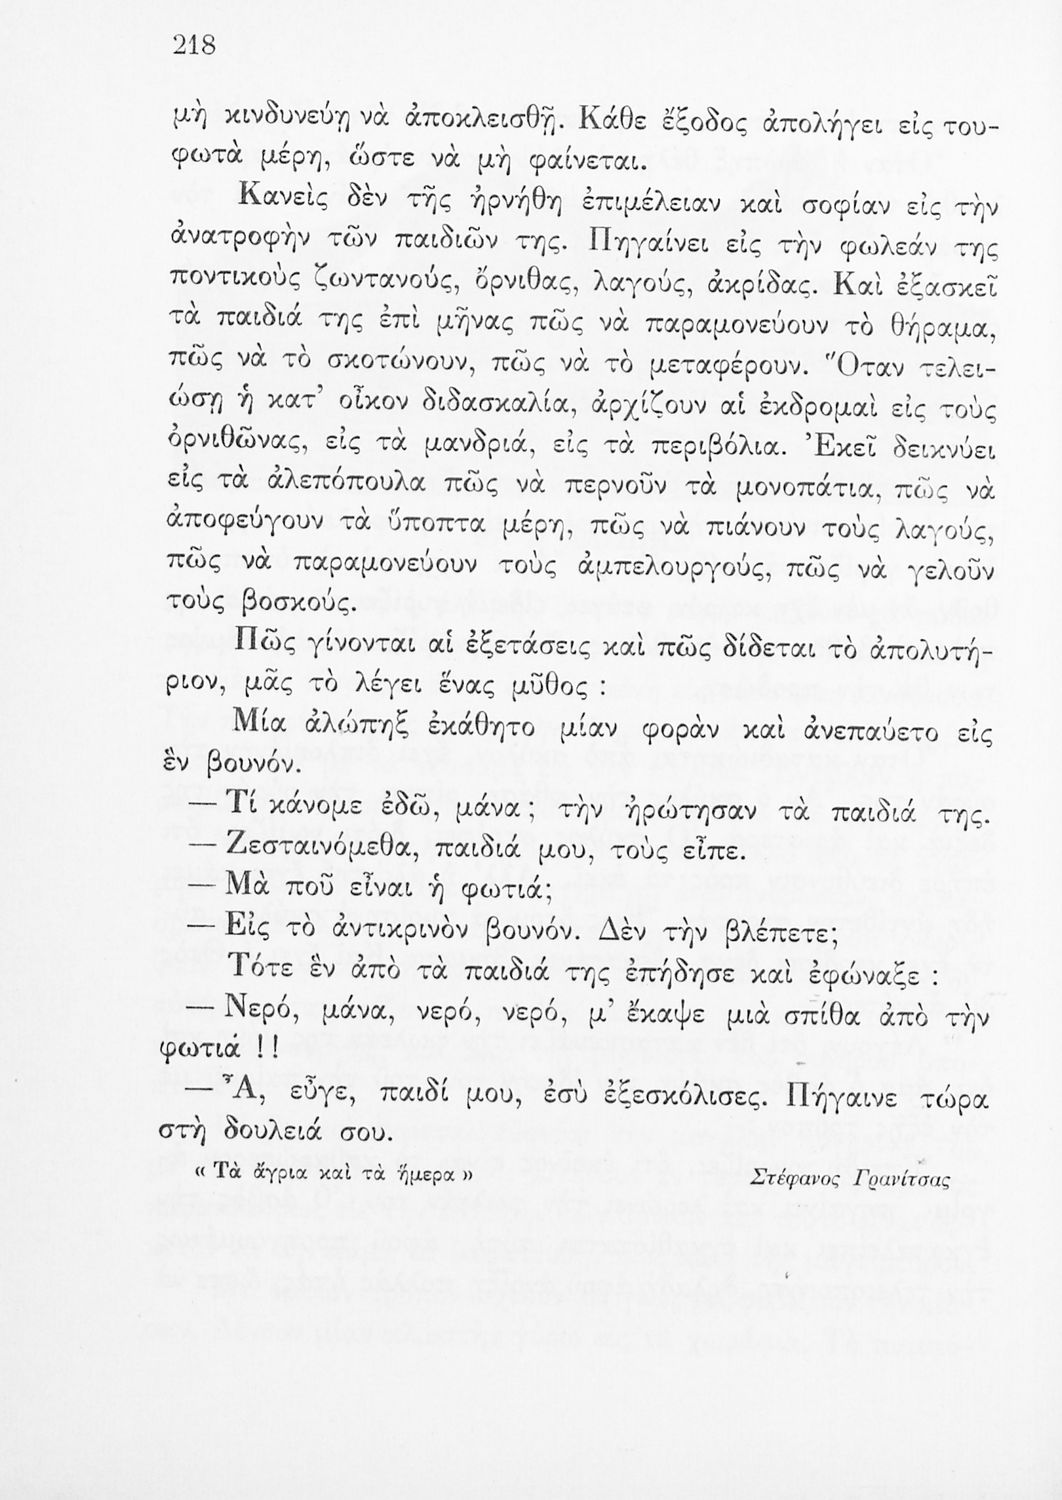 218
μὴ κινδυνεύῃ νὰ ἀποκλεισθῇ. Κάθε ἔξοδος ἀπολήγει εἰς του-
φωτὰ μέρη, ὥστε νὰ μὴ φαίνεται.
Κανεὶς δὲν τῆς ἠρνήθη ἐπιμέλειαν καὶ σοφίαν εἰς τὴν
ἀνατροφὴν τῶν παιδιῶν της. Πηγαίνει εἰς τὴν φωλεάν της
ποντικοὺς ζωντανούς, ὄρνιθας, λαγούς, ἀκρίδας. Καὶ ἐξασκεῖ
τὰ παιδιά της ἐπὶ μῆνας πῶς νὰ παραμονεύουν τὸ θήραμα,
πῶς νὰ τὸ σκοτώνουν, πῶς νὰ τὸ μεταφέρουν. Ὅταν τελει-
ώσῃ ἡ κατ’ οἶκον διδασκαλία, ἀρχίζουν αἱ ἐκδρομαὶ εἰς τοὺς
ὀρνιθῶνας, εἰς τὰ μανδριά, εἰς τὰ περιβόλια. Ἐκεῖ δεικνύει
εἰς τὰ ἀλεπόπουλα πῶς νὰ περνοῦν τὰ μονοπάτια, πῶς νὰ
ἀποφεύγουν τὰ ὕποπτα μέρη, πῶς νὰ πιάνουν τοὺς λαγούς,
πῶς νὰ παραμονεύουν τοὺς ἀμπελουργούς, πῶς νὰ γελοῦν
τοὺς βοσκούς.
Πῶς γίνονται αἱ ἐξετάσεις καὶ πῶς δίδεται τὸ ἀπολυτή-
ριον, μᾶς τὸ λέγει ἕνας μῦθος :
Μία ἀλώπηξ ἐκάθητο μίαν φορὰν καὶ ἀνεπαύετο εἰς
ἓν βουνόν.
— Τί κάνομε ἐδῶ, μάνα; τὴν ἠρώτησαν τὰ παιδιά της.
— Ζεσταινόμεθα, παιδιά μου, τοὺς εἶπε.
— Μὰ ποῦ εἶναι ἡ φωτιά;
— Εἰς τὸ ἀντικρινὸν βουνόν. Δὲν τὴν βλέπετε;
Τότε ἓν ἀπὸ τὰ παιδιά της ἐπήδησε καὶ ἐφώναξε :
— Νερό, μάνα, νερό, νερό, μ’ ἔκαψε μιὰ σπίθα ἀπὸ τὴν
φωτιά !!
— Ἆ, εὖγε, παιδί μου, ἐσὺ ἐξεσκόλισες. Πήγαινε τώρα
στὴ δουλειά σου.
« Τὰ ἄγρια καὶ τὰ ἥμερα » Στέφανος Γρανίτσας